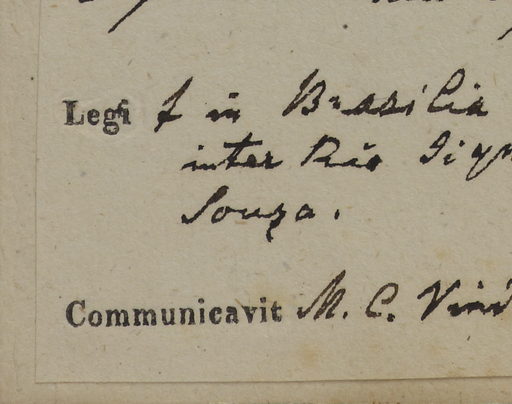 Legi f in Brasilia
inter Rio
Souza.
Communicavit M. C.